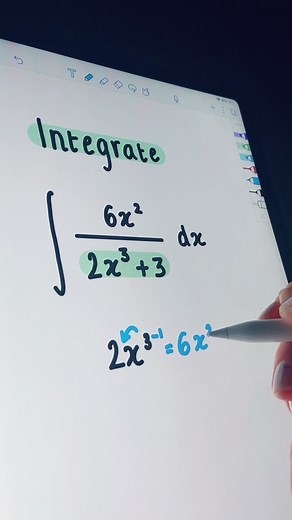 Integrate
∫ 6x² / (2x³ + 3) dx
2x³⁻¹ = 6x²